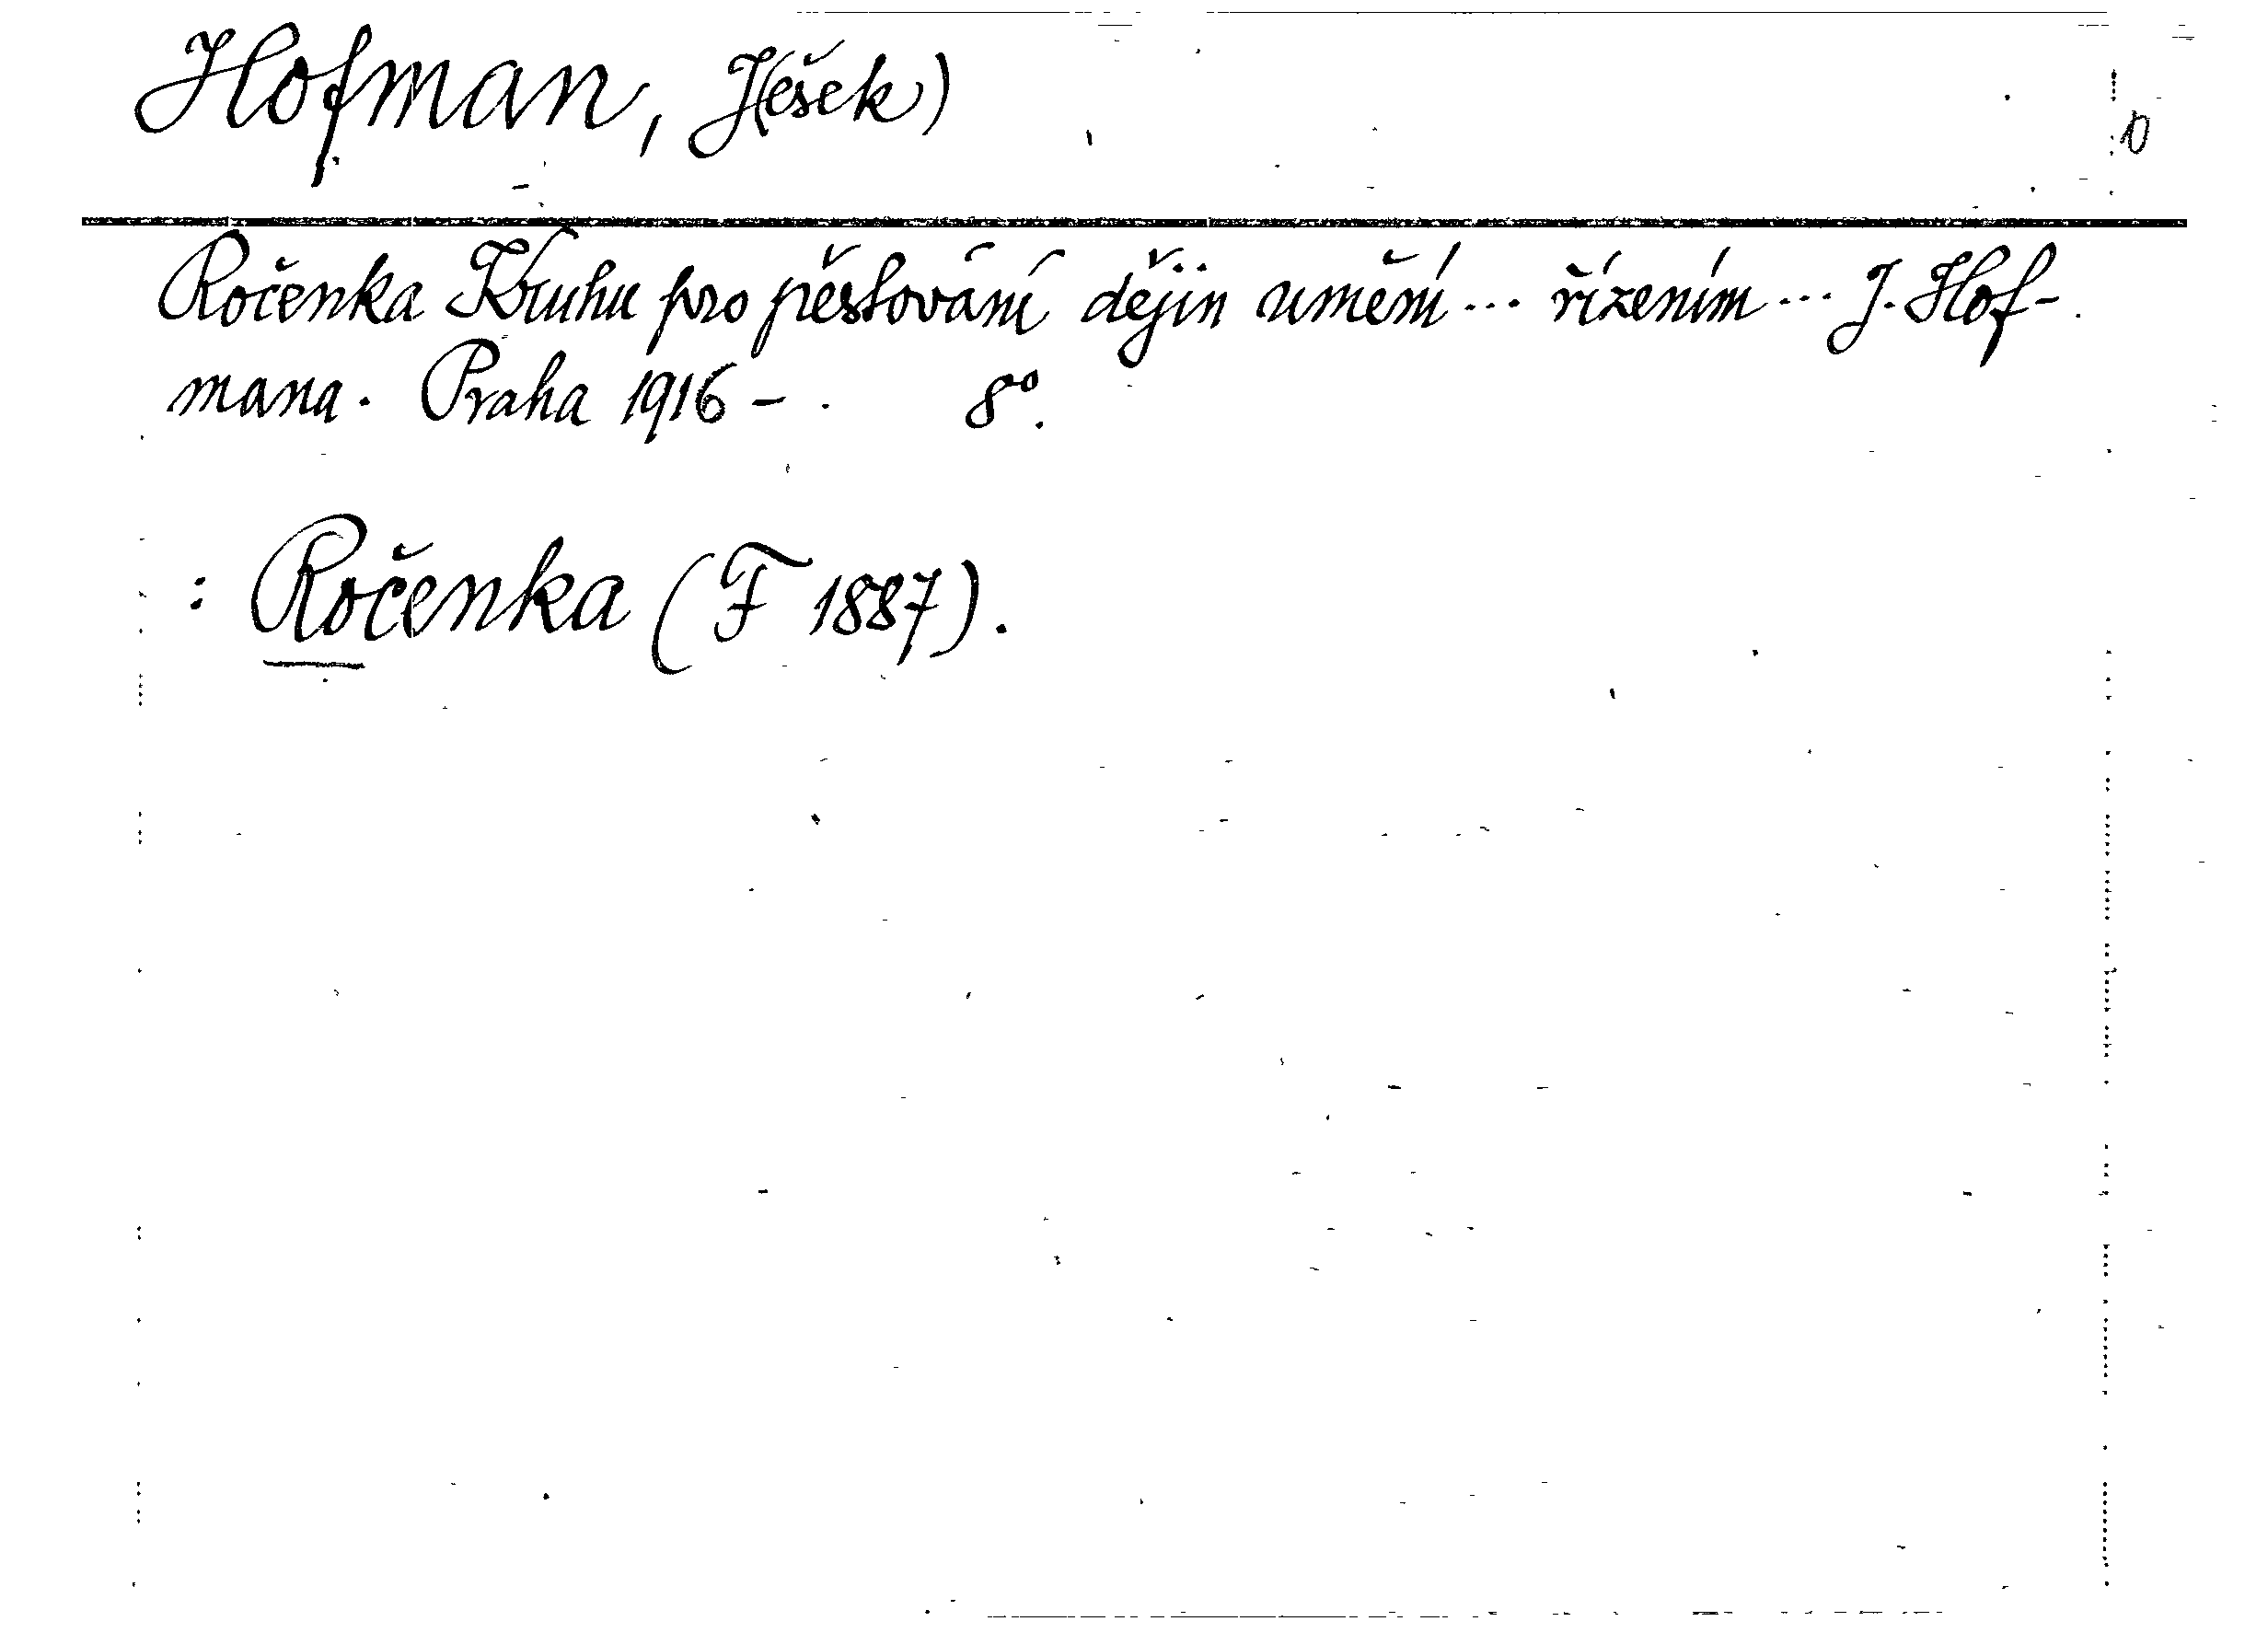 Hofman, J(ešek)
Ročenka Kruhu pro pěstování dějin umění... řízením... J. Hof-
mana. Praha 1916 - . 8°.
: Ročenka (F 1887).